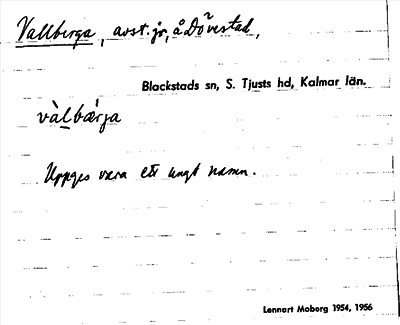 Vallberga, avst. jr, å Dövestad,
Blackstads sn, S. Tjusts hd, Kalmar län.
vàlbæ̀rja
Uppges vara ett ungt namn.
Lennart Moberg 1954, 1956